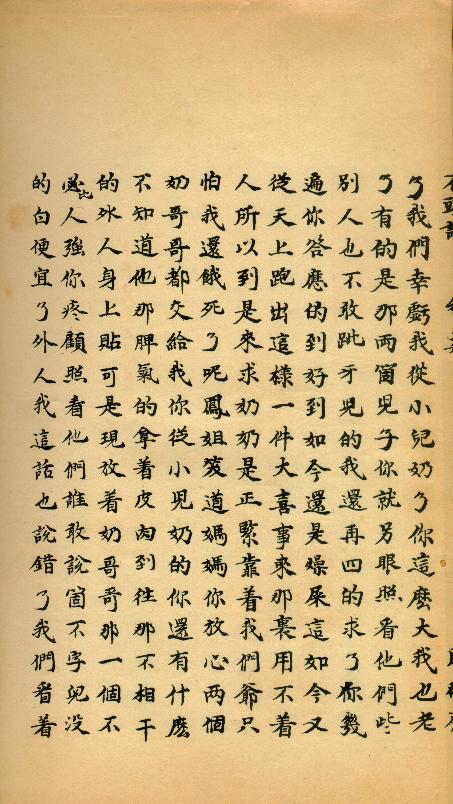 石頭記
了我們幸虧我從小兒奶了你這麽大我也老
了有的是那兩箇兒子你就另眼照看他們些
別人也不敢跐牙兒的我還再四的求了你幾
遍你答應的到好到如今還是燥屎這如今又
從天上跑出這樣一件大喜事來那裏用不着
人所以到是來求奶奶是正緊靠着我們爺只
怕我還餓死了呢鳳姐笑道媽媽你放心兩個
奶哥哥都交給我你從小兒奶的你還有什麽
不知道他那脾氣的拿着皮肉到往那不相干
的外人身上貼可是現放着奶哥哥那一個不
比人強你疼顧照看他們誰敢說箇不字兒没
的白便宜了外人我這話也說錯了我們看着